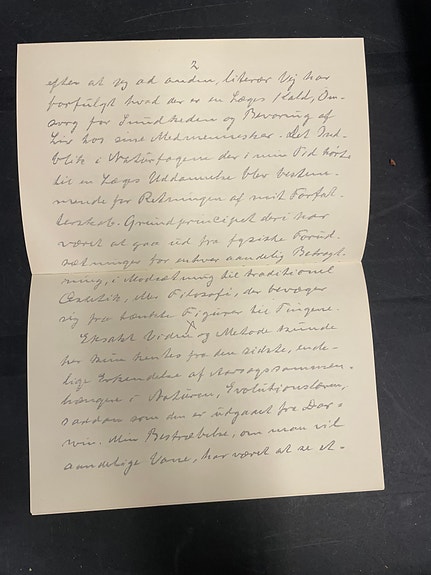 2
efter at jeg ad anden, literær Vej har
forfulgt hvad der er en Læges Kald, Om-
sorg for Sundheden og Bevaring af
Liv hos sine Medmennesker. Det Ind-
blik i Naturfagene der i min Tid hørte
til en Læges Uddannelse blev bestem-
mende for Retningen af mit Forfat-
terskab. Grundprincipet deri har
været at gaa ud fra fysiske Forud-
sætninger for enhver aandelig Betragt-
ning, i Modsætning til traditionel
Æstetik, eller Filosofi, der bevæger
sig fra tænkte Figurer til Tingene.
Eksakt Viden og Metode kunde
her kun hentes fra den sidste, ende-
lige Erkendelse af Aarsagssammen-
hængene i Naturen, Evolutionsloven,
saadan som den er udgaaet fra Dar-
win. Min Bestræbelse, om man vil
aandelige Vane, har været at se et